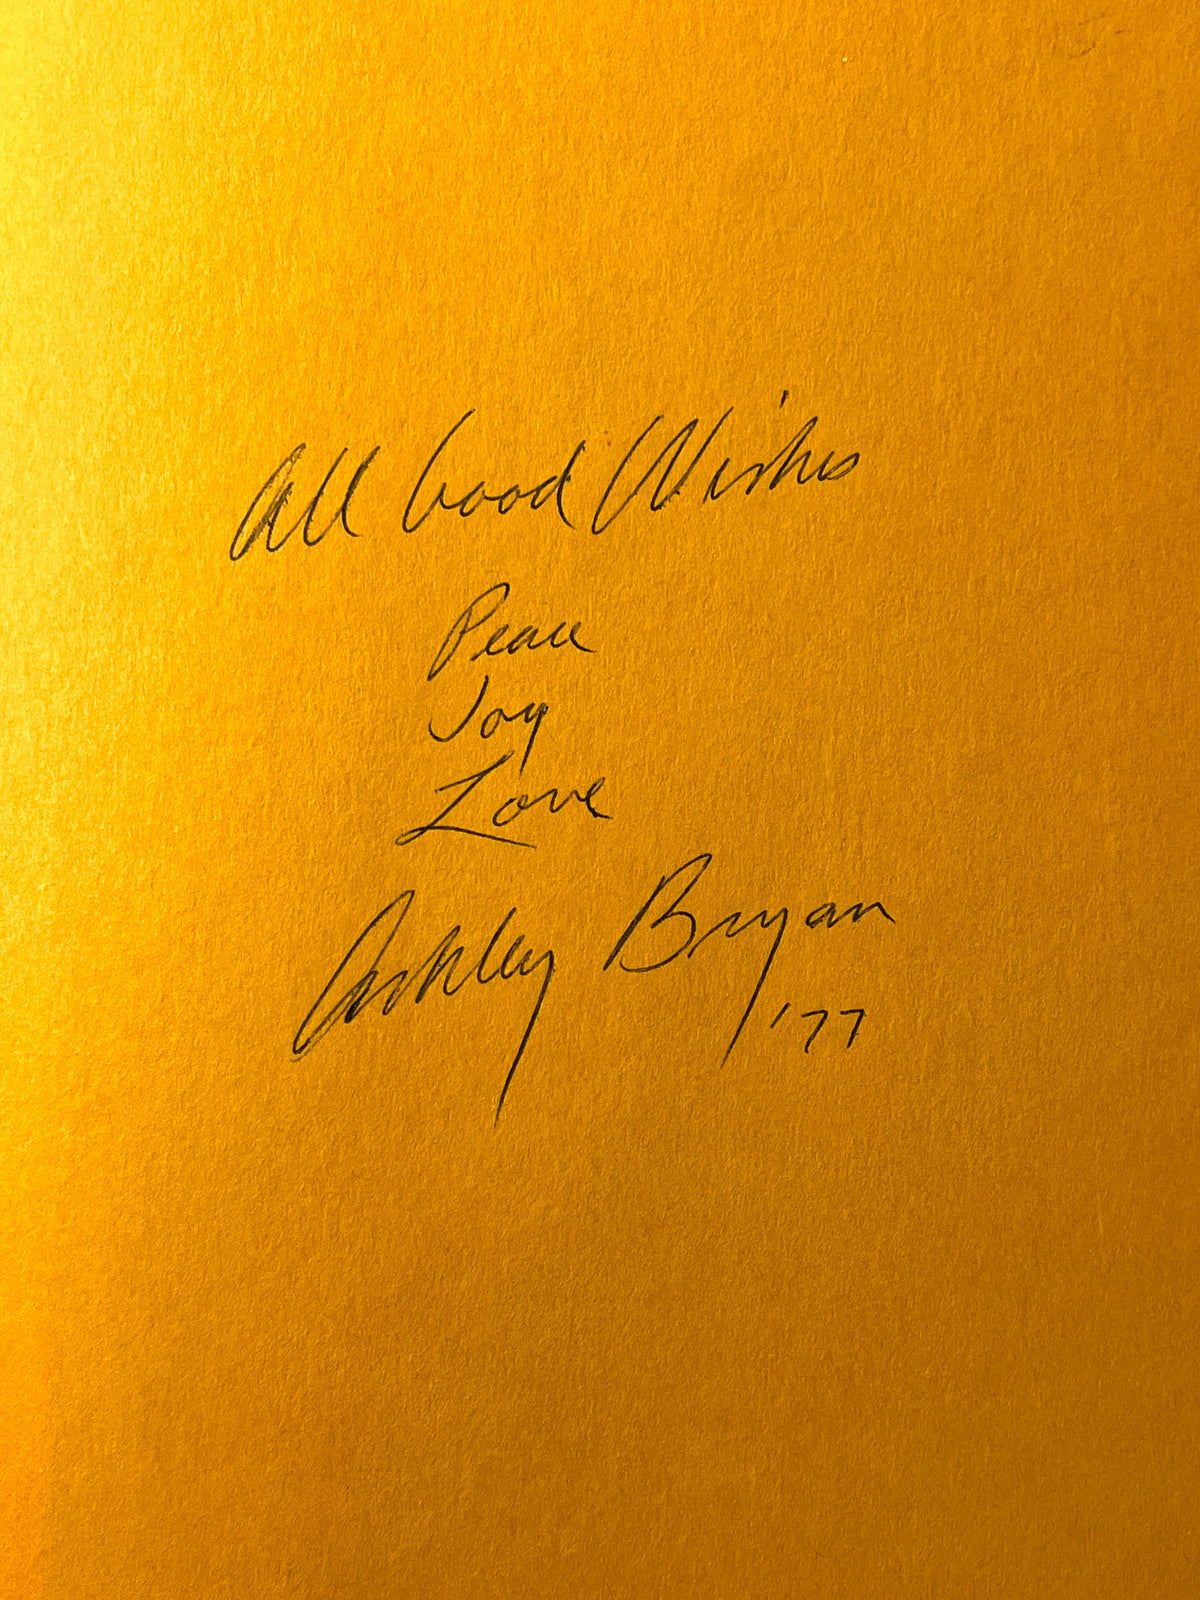 All Good Wishes
Peace
Joy
Love
Ashley Bryan
'77